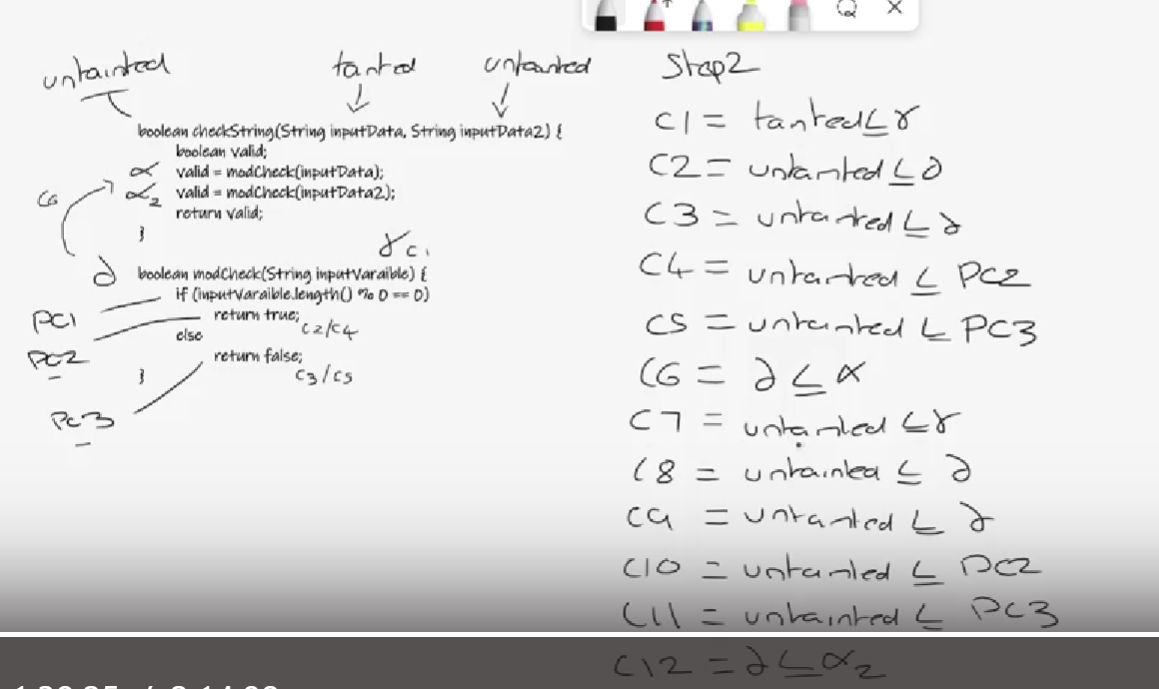 untainted
tanted
untanted
boolean checkString(String inputData, String inputData2) {
boolean valid;
α valid = modCheck(inputData);
α2 valid = modCheck(inputData2);
return valid;
}
C6
γ C1
∂ boolean modCheck(String inputVaraible) {
if (inputVaraible.length() % 0 == 0)
PC1
return true;
C2/C4
else
PC2
return false;
C3/C5
}
PC3
Step2
C1 = tanted ≤ γ
C2 = untanted ≤ ∂
C3 = untanted ≤ ∂
C4 = untanted ≤ PC2
C5 = untanted ≤ PC3
C6 = ∂ ≤ α
C7 = untanted ≤ γ
C8 = untainted ≤ ∂
C9 = untanted ≤ ∂
C10 = untanted ≤ PC2
C11 = untainted ≤ PC3
C12 = ∂ ≤ α2